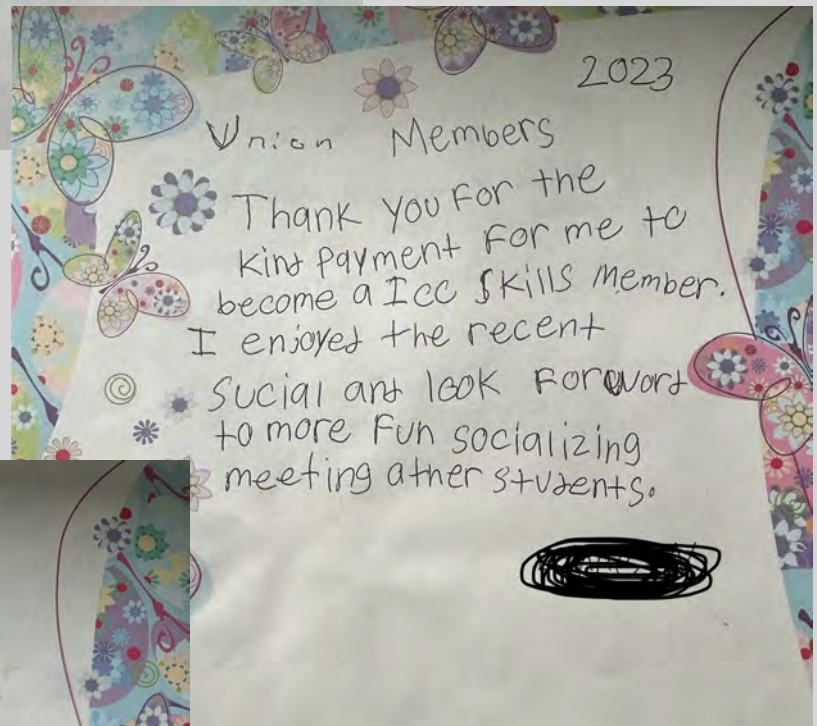 2023
Union Members
Thank you For the
kind payment For me to
become a Icc Skills Member.
I enjoyed the recent
Sucial and look Forword
to more Fun socializing
meeting ather students.